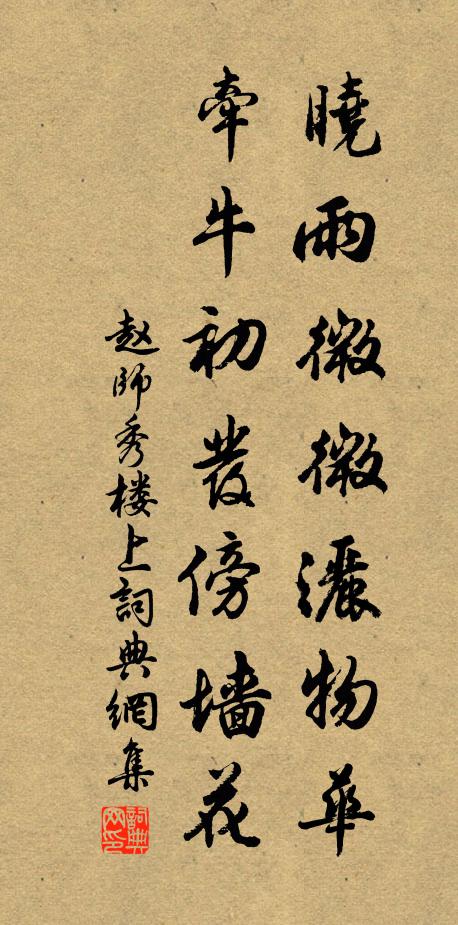 曉雨微微灑物華
牽牛初發傍墻花
赵師秀楼上詞典網集
詞典
网印